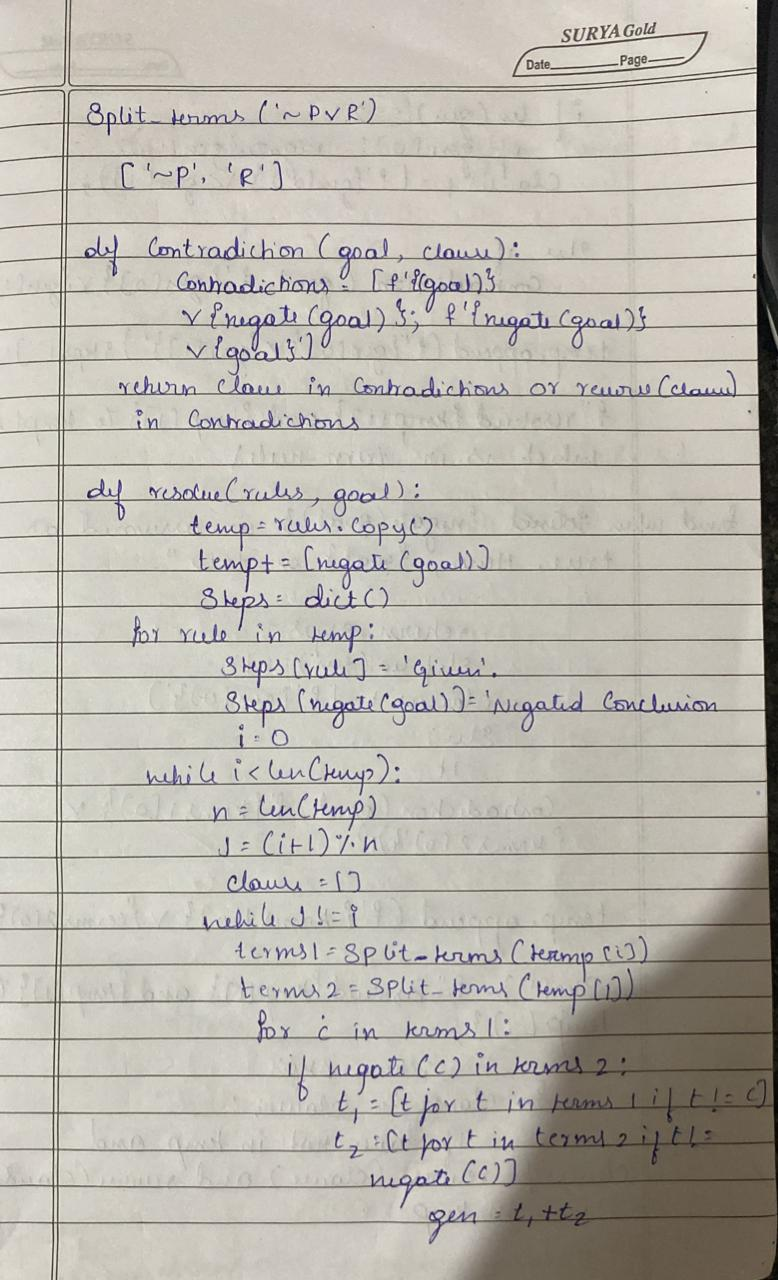 SURYA Gold
Date Page
Split_terms ('~PvR')
['~P', 'R']
def Contradiction (goal, clause):
Contradictions = [f'{(goal)}
v {negate (goal)}; f'{negate (goal)}
v {goal}']
return clause in Contradictions or reverse (clause)
in Contradictions
def resolve (rules, goal):
temp = rules.copy()
temp+ = [negate (goal)]
Steps = dict()
for rule in temp:
Steps [rule] = 'Given'.
Steps [negate (goal)] = 'Negated Conclusion
i = 0
while i < len(temp):
n = len(temp)
J = (i+1) % n
clause = []
while J != i
terms1 = Split_terms (temp [i])
terms2 = Split_terms (temp [J])
for c in terms 1:
if negate (c) in terms 2:
t1 = [t for t in terms 1 if t != c]
t2 = [t for t in terms 2 if t !=
negate (c)]
gen = t1 + t2